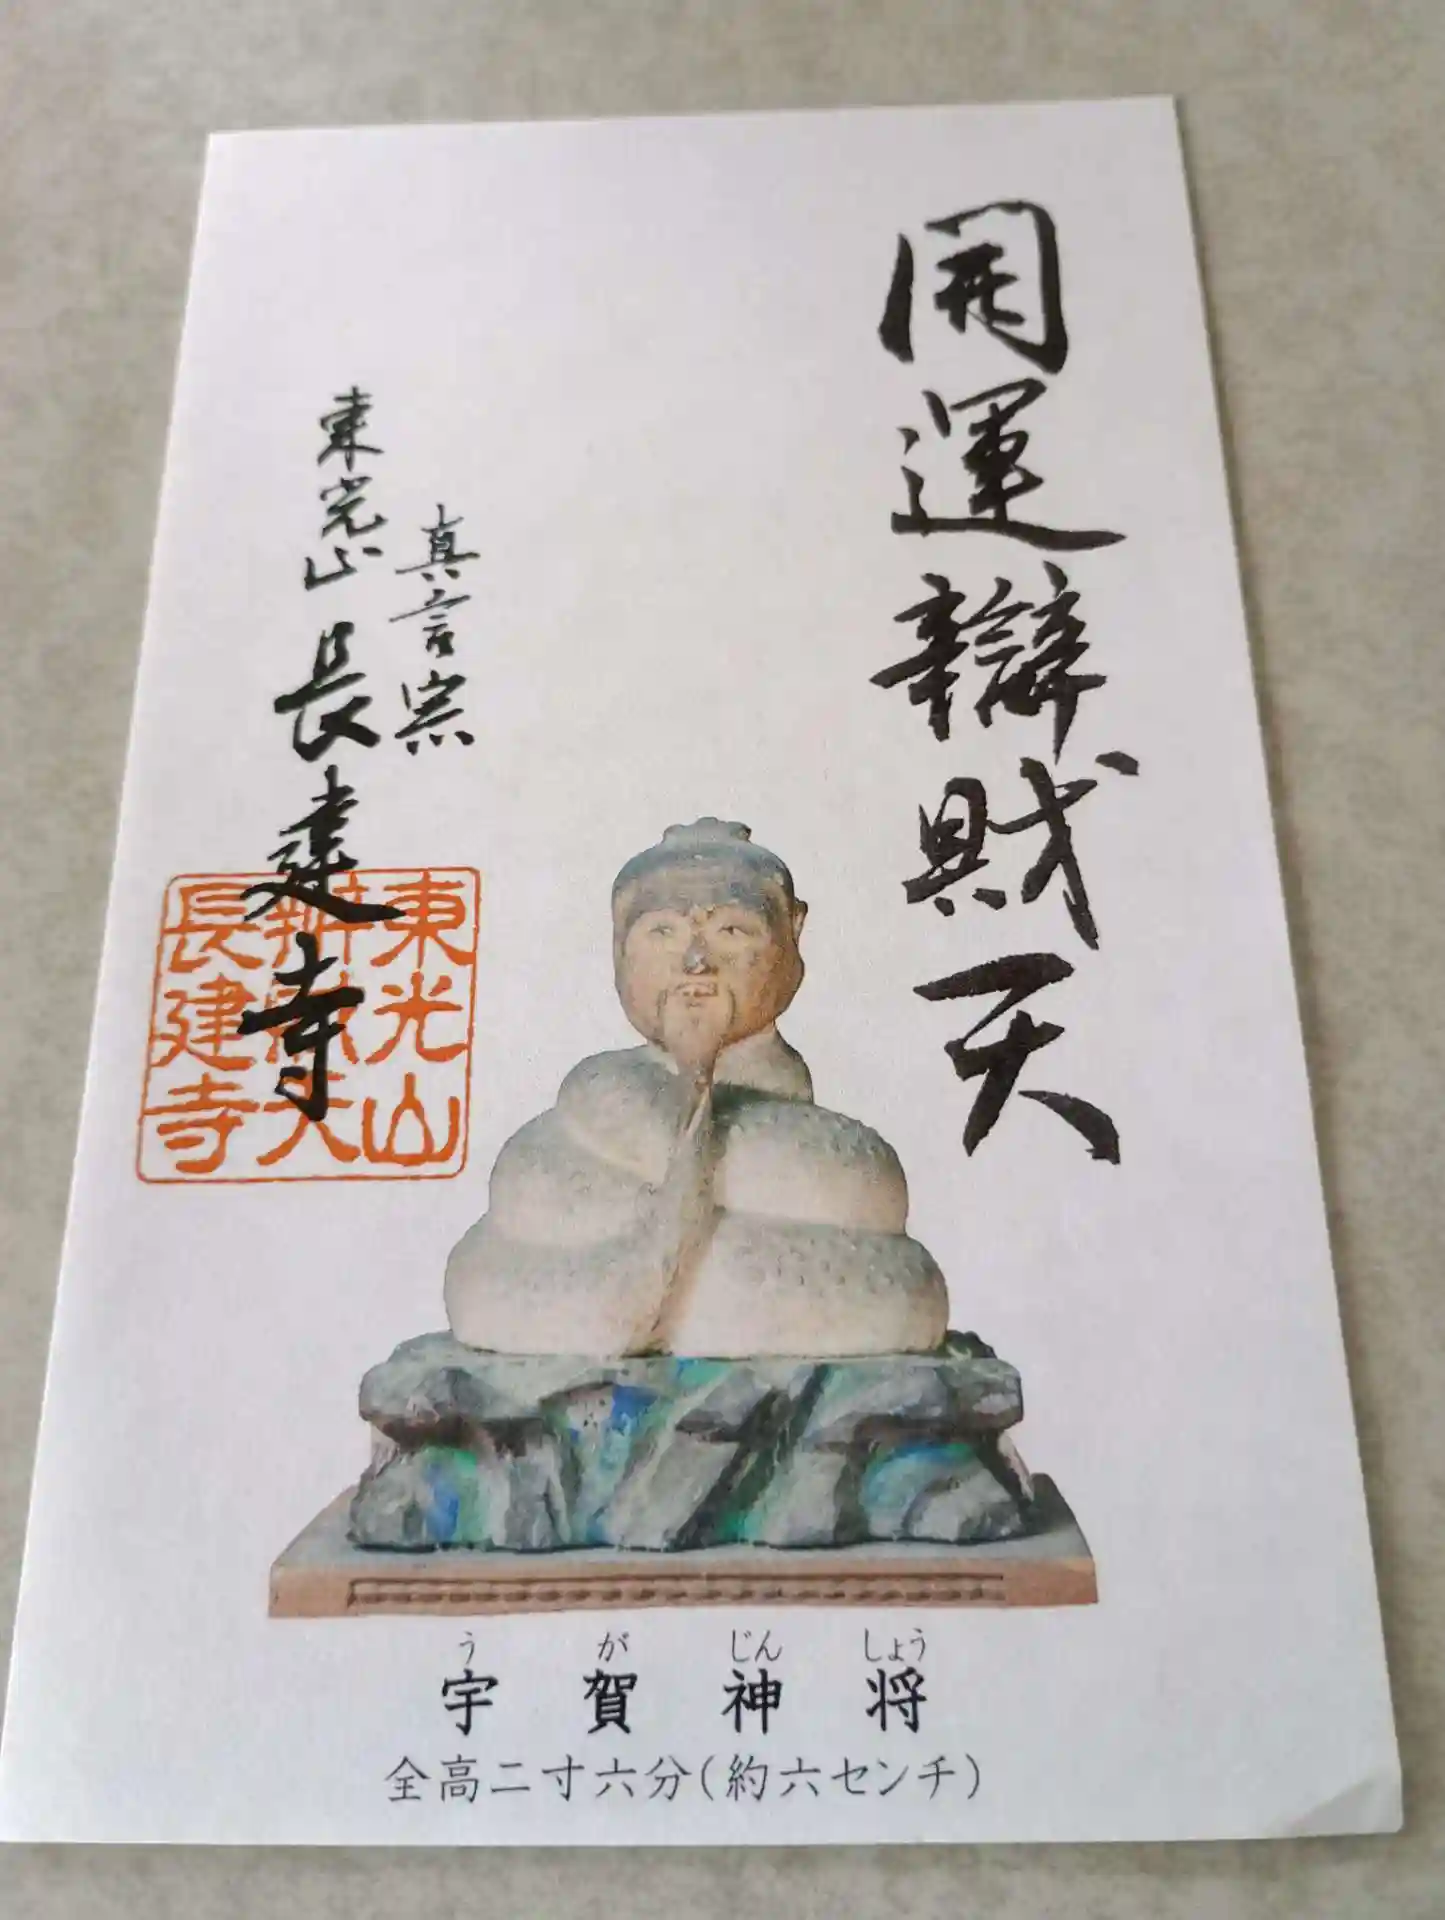 開運辯財天
真言宗
東光山 長建寺
東光山
辨財天
長建寺
う が じん しょう
宇賀神将
全高二寸六分(約六センチ)